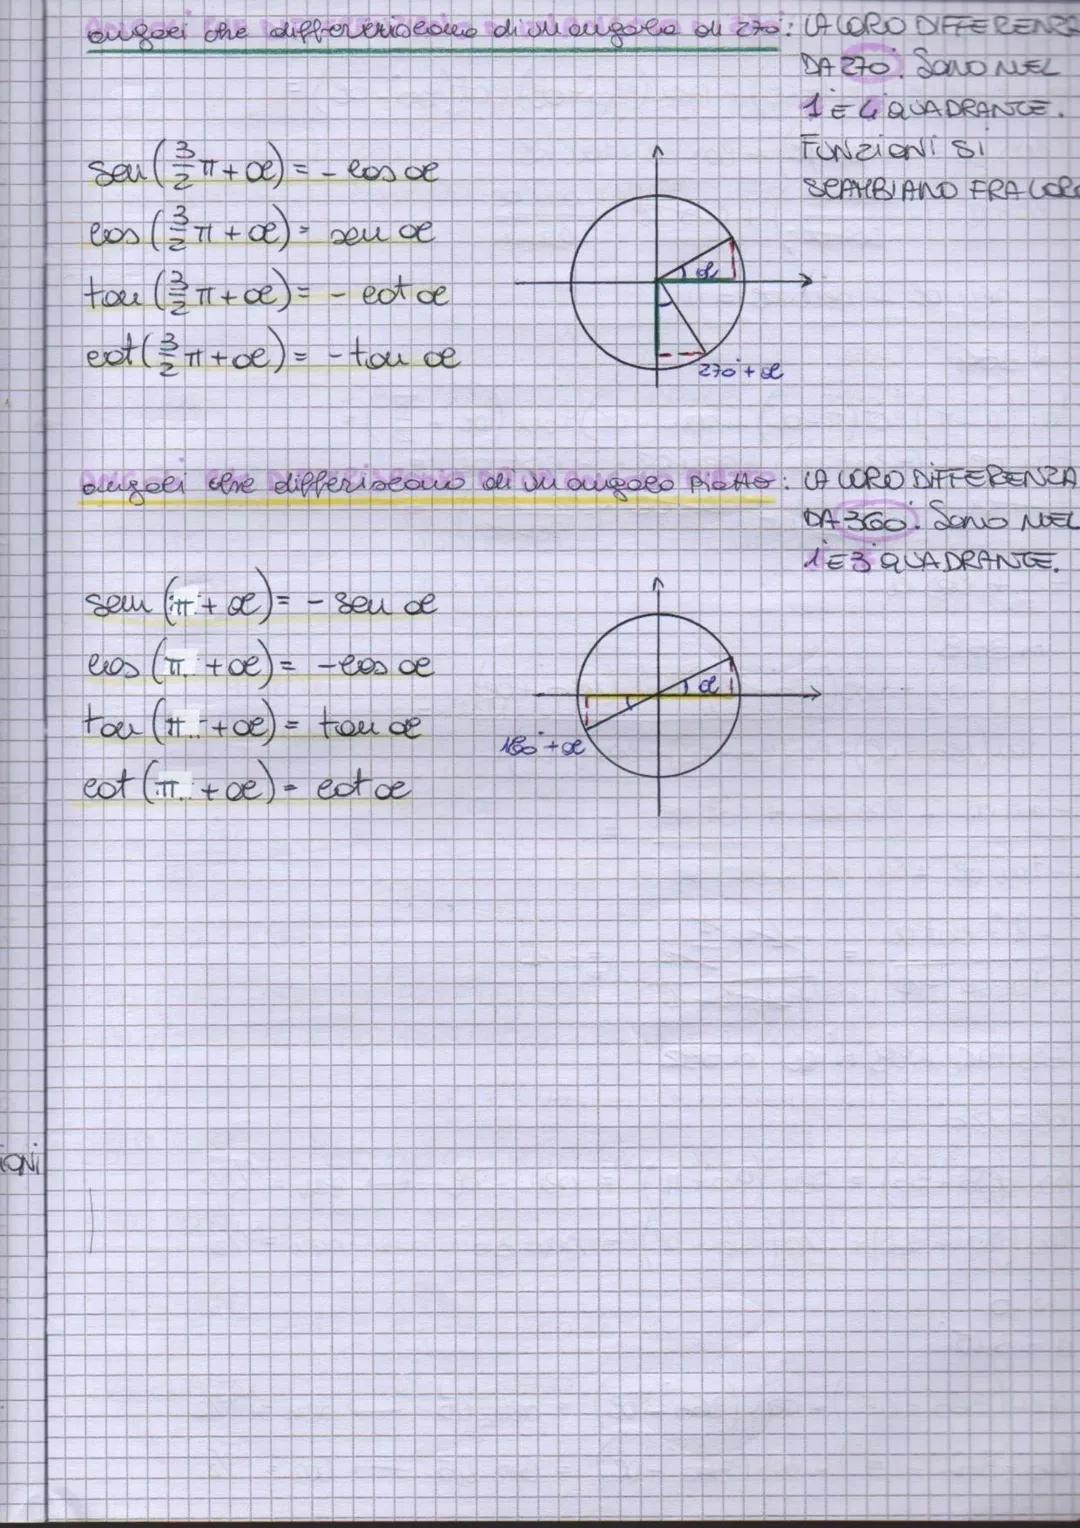 angoli che differeriscono di un angolo di 270°: LA LORO DIFFERENZA
DA 270°. SONO NEL
1 E 4 QUADRANTE.
FUNZIONI SI
SCAMBIANO FRA LORO
sen (3/2 π + α) = - cos α
cos (3/2 π + α) = sen α
tan (3/2 π + α) = - cot α
cot (3/2 π + α) = - tan α
α
270° + α
angoli che differiscono di un angolo piatto: LA LORO DIFFERENZA
DA 360°. SONO NEL
1 E 3 QUADRANTE.
sen (π + α) = - sen α
cos (π + α) = - cos α
tan (π + α) = tan α
cot (π + α) = cot α
α
180° + α
IONI